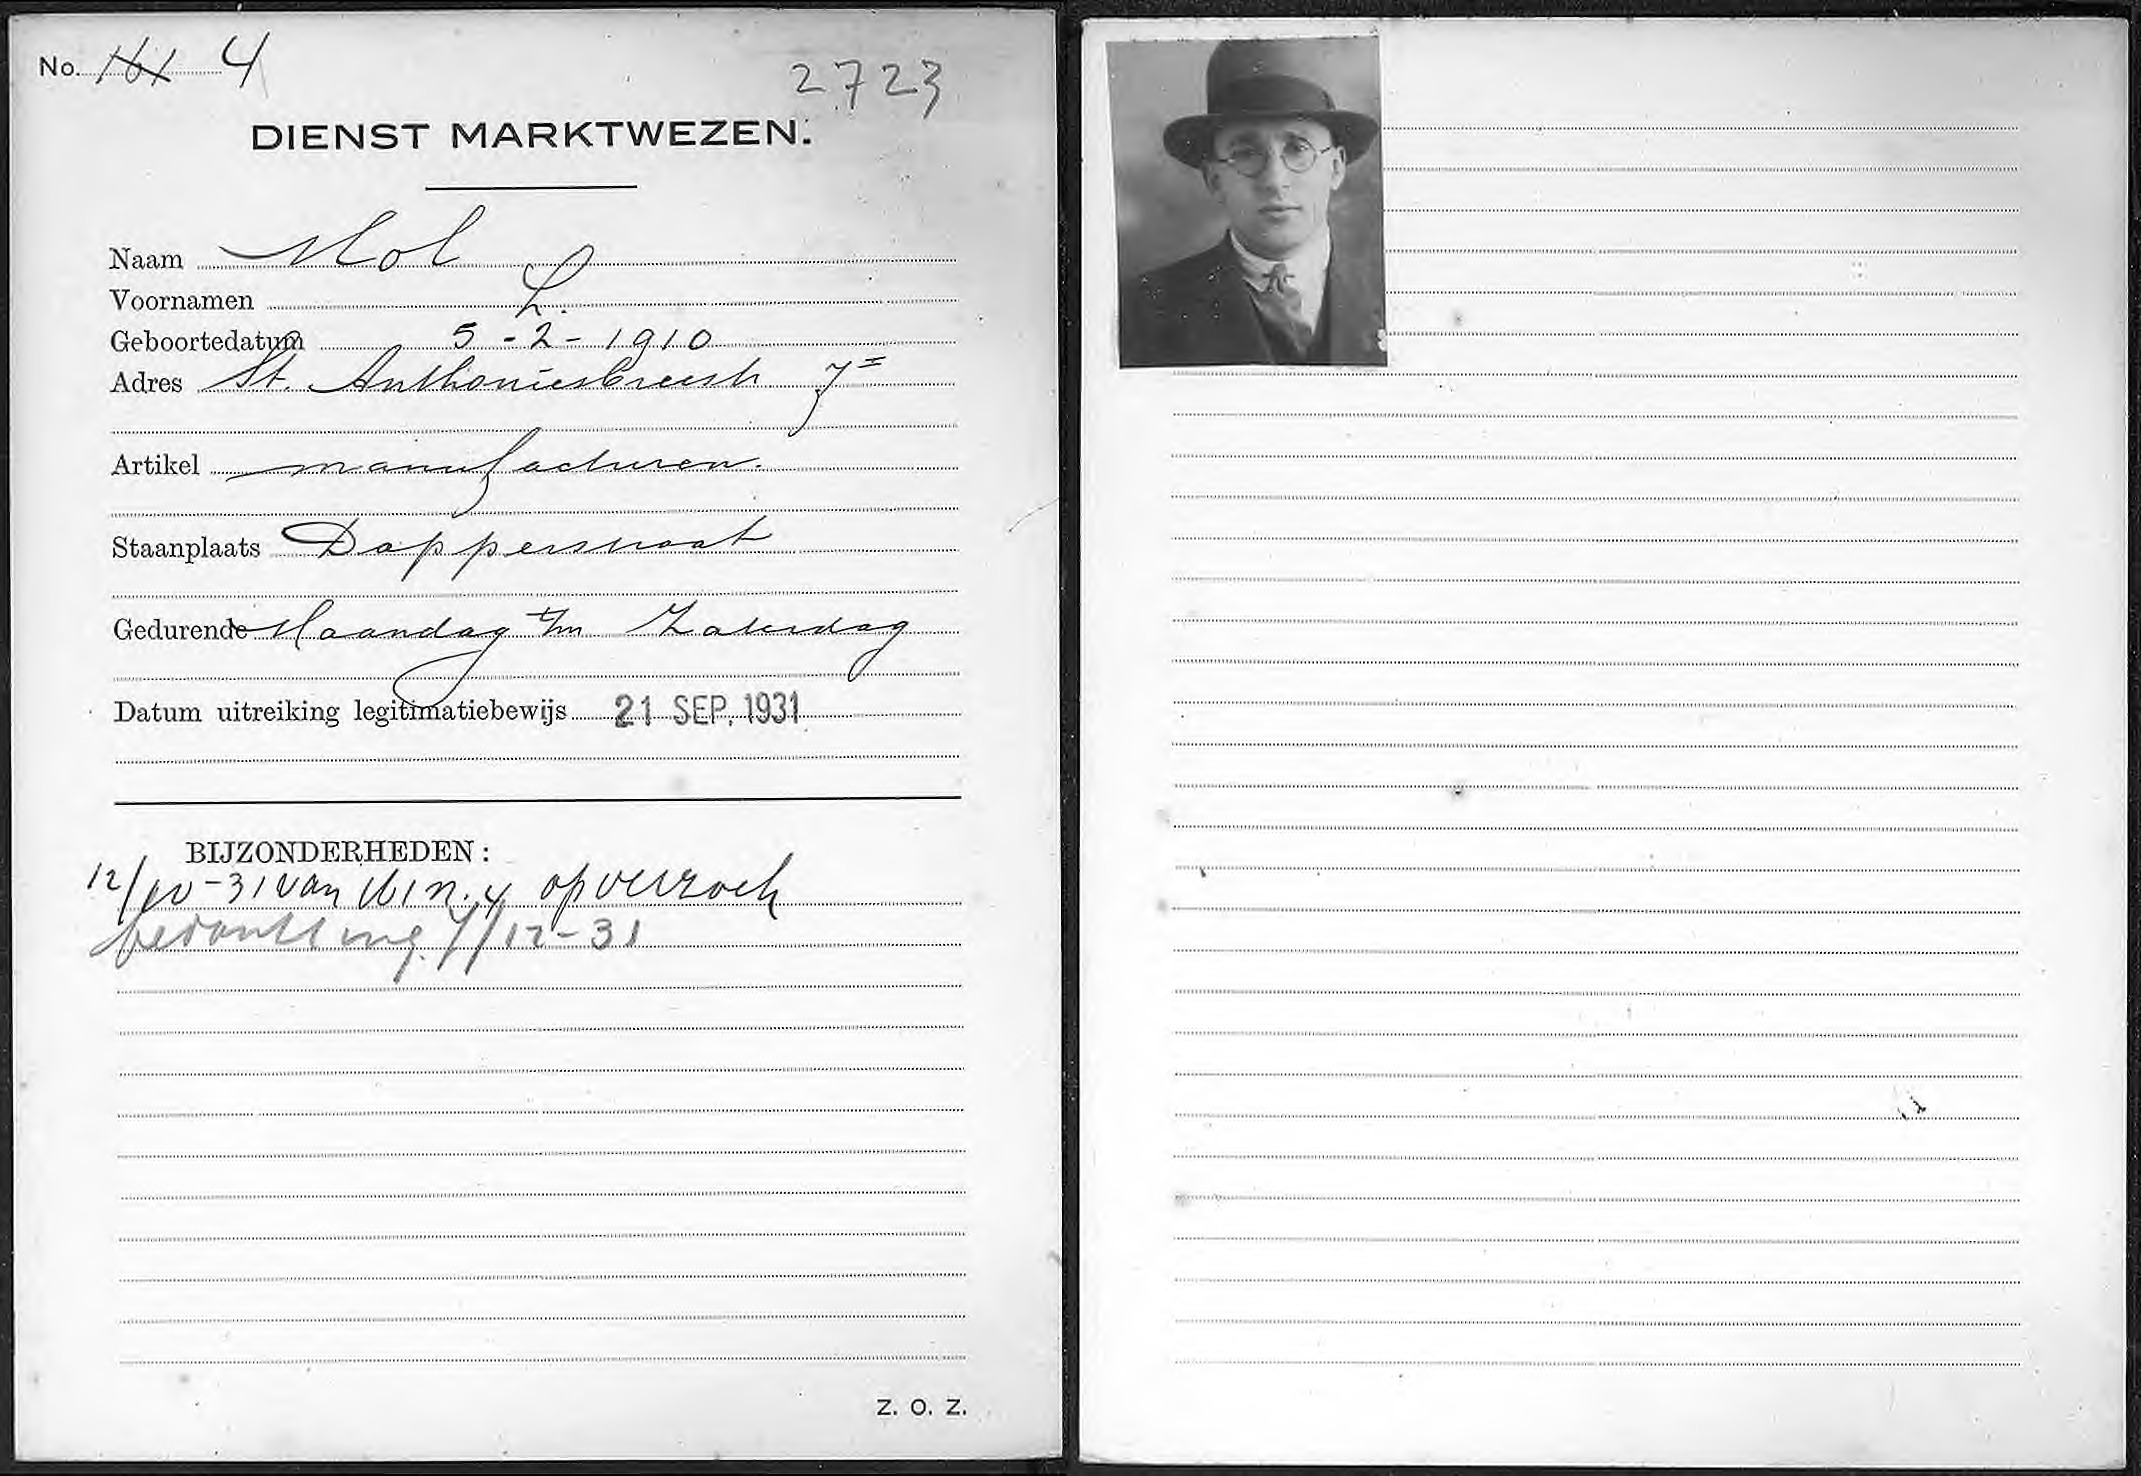 No. 161 4
2723
DIENST MARKTWEZEN.
Naam Mol
Voornamen L.
Geboortedatum 5-2-1910
Adres St. Anthoniesbreestr 7 I
Artikel manufacturen.
Staanplaats Dapperstraat
Gedurende Maandag t/m Zaterdag
Datum uitreiking legitimatiebewijs 21 SEP. 1931
BIJZONDERHEDEN:
12/10-31 van 161 n. 4 op verzoek
bedankt 7/12-31
Z. O. Z.